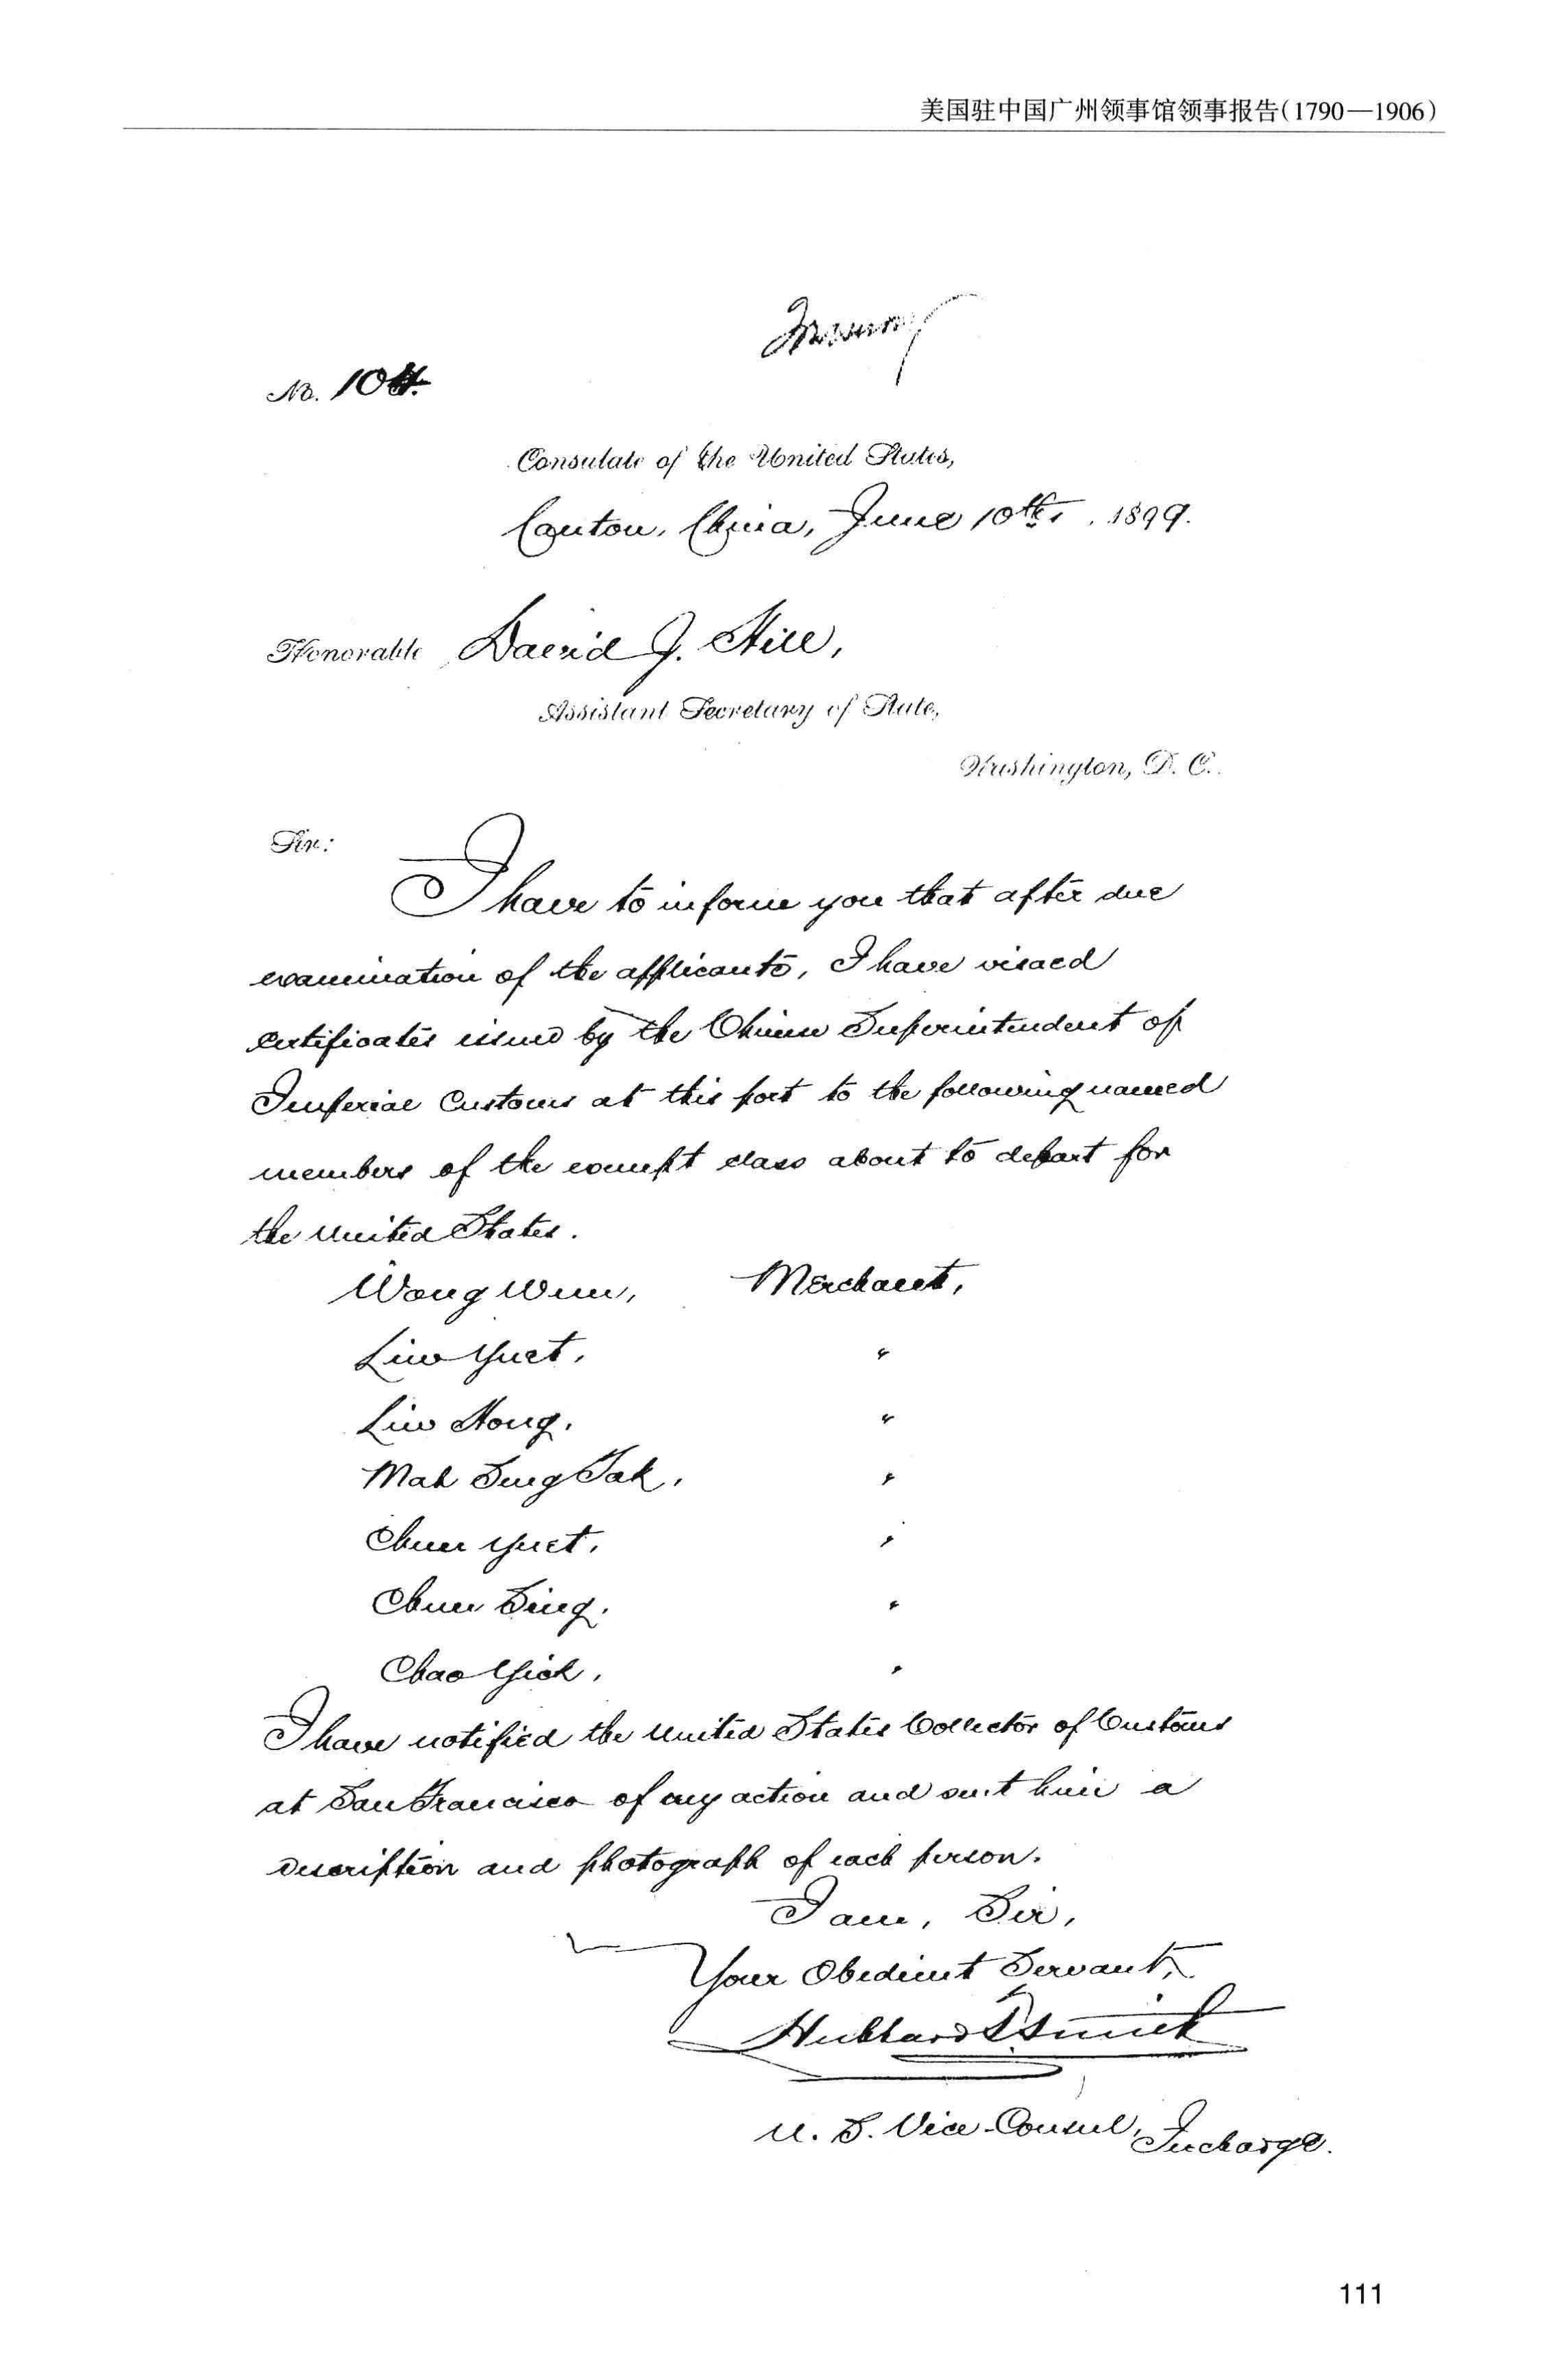 美国驻中国广州领事馆领事报告(1790—1906)
No. 104.
Consulate of the United States,
Canton, China, June 10th, 1899.
Honorable David J. Hill,
Assistant Secretary of State,
Washington, D. C.
Sir:
I have to inform you that after due
examination of the applicants, I have visaed
certificates issued by the Chinese Superintendent of
Imperial Customs at this port to the following named
members of the exempt class about to depart for
the United States.
Wong Wun, Merchant,
Liw Yuet, "
Liw Hong, "
Mah Sung Tak, "
Chun Yuet, "
Chun Sing, "
Chao Yick, "
I have notified the United States Collector of Customs
at San Francisco of my action and sent him a
description and photograph of each person.
I am, Sir,
Your Obedient Servant,
Hubbard T. Smith
U. S. Vice-Consul, In charge.
111